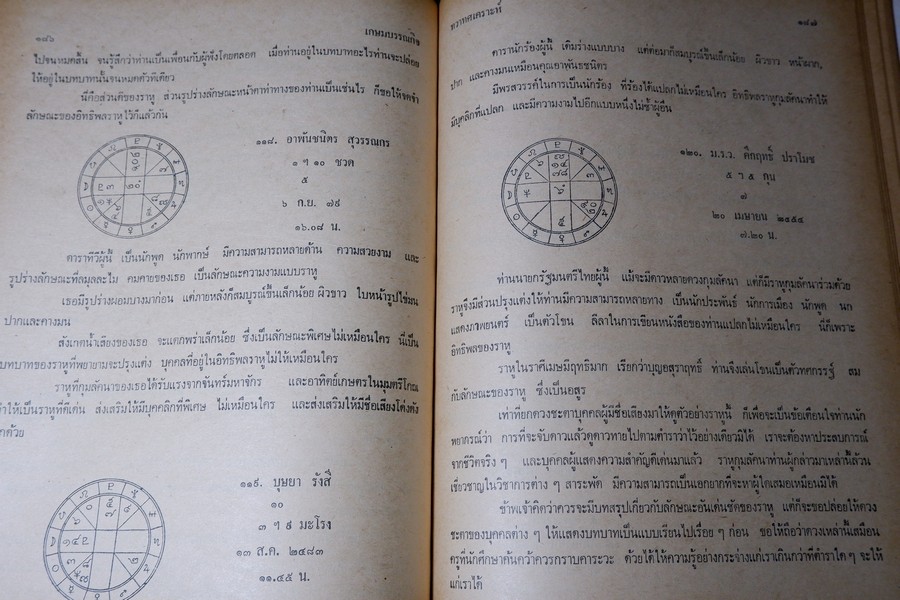 ๑๘๖
เกษมบรรณกิจ
ไปจนหมดสิ้น จนรู้สึกว่าท่านเป็นเพื่อนกับผู้ฟังโดยตลอด เมื่อท่านอยู่ในบทบาทอะไรท่านจะปล่อย
ให้อยู่ในบทบาทนั้นจนหมดตัวทีเดียว
นี่คือส่วนดีของราหู ส่วนรูปร่างลักษณะหน้าตาท่าทางของท่านเป็นเช่นไร ก็ขอให้จดจำ
ลักษณะของอิทธิพลราหูไว้ก็แล้วกัน
๑๑๘. อาพันชนิตร สุวรรณกร
๑ ฯ ๑๐ ชวด
๕
๖ ก.ย. ๗๙
๑๖.๐๘ น.
ดาราทีวีผู้นี้ เป็นนักพูด นักพากษ์ มีความสามารถหลายด้าน ความสวยงาม และ
รูปร่างลักษณะที่ลมุลละไม คมคายของเธอ เป็นลักษณะความงามแบบราหู
เธอมีรูปร่างผอมบางมาก่อน แต่ภายหลังก็สมบูรณ์ขึ้นเล็กน้อย ผิวขาว ใบหน้ารูปไข่มน
ปากและคางมน
สังเกตน้ำเสียงของเธอ จะแตกพร่าเล็กน้อย ซึ่งเป็นลักษณะพิเศษไม่เหมือนใคร นี่เป็น
บทบาทของราหูที่พยายามจะปรุงแต่ง บุคคลที่อยู่ในอิทธิพลราหูไม่ให้เหมือนใคร
ราหูที่กุมลัคนาของเธอได้รับแรงจากจันทร์มหาจักร และอาทิตย์เกษตรในมุมตรีโกณ
ทำให้เป็นราหูที่ดีเด่น ส่งเสริมให้มีบุคคลิกที่พิเศษ ไม่เหมือนใคร และส่งเสริมให้มีชื่อเสียงโด่งดัง
๑๑๙. บุษยา รังสี
๑๐
๓ ฯ ๙ มะโรง
๑๓ ส.ค. ๒๔๘๓
๑๑.๔๕ น.
ทวาทศเคราะห์
๑๘๗
ดารานักร้องผู้นี้ เดิมร่างแบบบาง แต่ต่อมาก็สมบูรณ์ขึ้นเล็กน้อย ผิวขาว หน้าผาก,
ปาก และคางมนเหมือนคุณอาพันธชนิตร
มีพรสวรรค์ในการเป็นนักร้อง ที่ร้องได้แปลกไม่เหมือนใคร อิทธิพลราหูกุมลัคนาทำให้
มีบุคลิกที่แปลก และมีความงามไปอีกแบบหนึ่งไม่ซ้ำผู้อื่น
๑๒๐. ม.ร.ว. คึกฤทธิ์ ปราโมช
๕ ฯ ๕ กุน
๗
๒๐ เมษายน ๒๔๕๔
๗.๒๐ น.
ท่านนายกรัฐมนตรีไทยผู้นี้ แม้จะมีดาวหลายดวงกุมลัคนา แต่ก็มีราหูกุมลัคนาร่วมด้วย
ราหูจึงมีส่วนปรุงแต่งให้ท่านมีความสามารถหลายทาง เป็นนักประพันธ์ นักการเมือง นักพูด นัก
แสดงภาพยนตร์ เป็นตัวโขน ลีลาในการเขียนหนังสือของท่านแปลกไม่เหมือนใคร นี่ก็เพราะ
อิทธิพลของราหู
ราหูในราศีเมษมีฤทธิมาก เรียกว่าบุญอสุราฤทธิ์ ท่านจึงเล่นโขนเป็นตัวทศกรรฐ์ สม
กับลักษณะของราหู ซึ่งเป็นอสูร
เท่าที่ยกดวงชะตาบุคคลผู้มีชื่อเสียงมาให้ดูตัวอย่างราหูนี้ ก็เพื่อจะเป็นข้อเตือนใจท่านนัก
พยากรณ์ว่า การที่จะจับดาวแล้วดูดาวทายไปตามตำราว่าไว้อย่างเดียวมิได้ เราจะต้องหาประสบการณ์
จากชีวิตจริง ๆ และบุคคลผู้แสดงความสำคัญดีเด่นมาแล้ว ราหูกุมลัคนาท่านผู้กล่าวมาเหล่านี้ล้วน
เชี่ยวชาญในวิชาการต่าง ๆ สารพัด มีความสามารถเป็นเอกยากที่จะหาผู้ใดเสมอเหมือนมิได้
ข้าพเจ้าคิดว่าควรจะมีบทสรุปเกี่ยวกับลักษณะอันเด่นชัดของราหู แต่ก็จะขอปล่อยให้ดวง
ชะตาของบุคคลต่าง ๆ ให้แสดงบทบาทเป็นแบบเรียนไปเรื่อย ๆ ก่อน ขอให้ถือว่าดวงเหล่านี้เสมือน
ครูที่นักศึกษาค้นคว้าควรกราบคาระวะ ด้วยได้ให้ความรู้อย่างกระจ่างแก่เราเกินกว่าที่ตำราใด ๆ จะให้
แก่เราได้